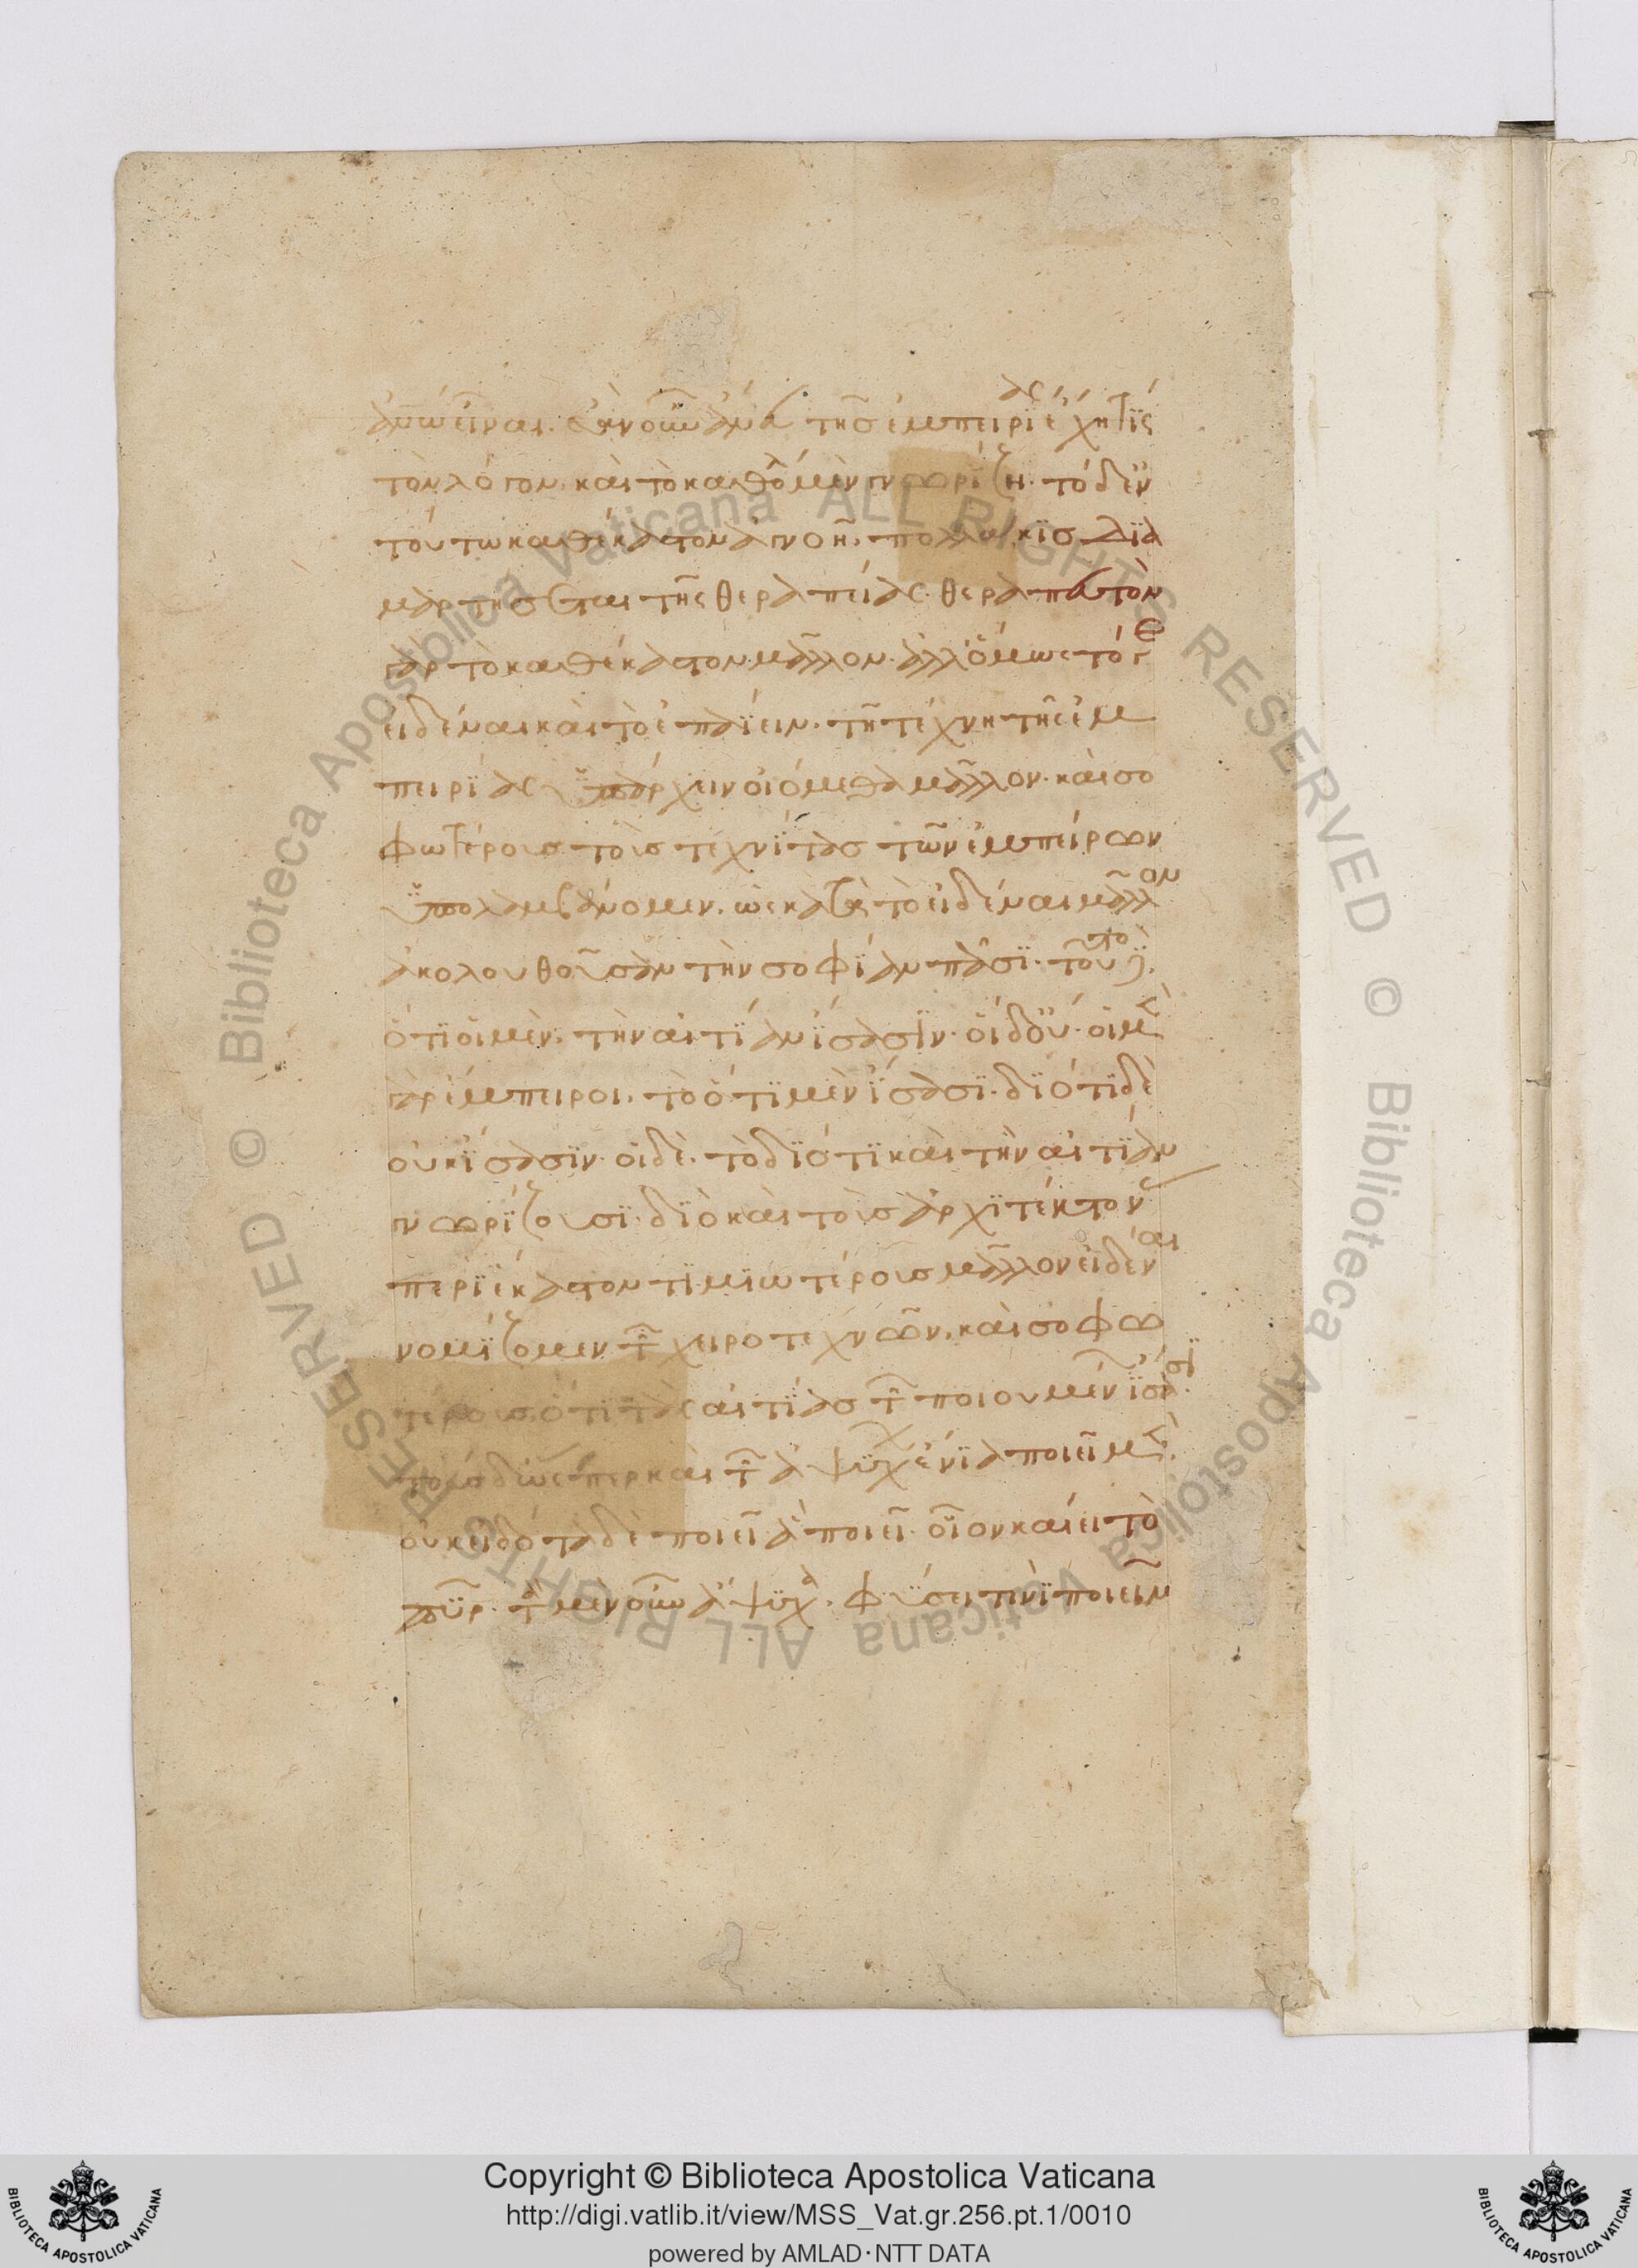 ἀνω εἶναι. ἐὰν οὖν ἄνευ τῆς ἐμπειρίας ἔχη τίς
τὸν λόγον. καὶ τὸ καθόλου μὲν γνωρίζη. τὸ δ' ἐν
τούτω καθέκαστον ἀγνοῆ. πολλάκις δια
μαρτήσεται τῆς θεραπείας. θεραπευτὸν
γὰρ τὸ καθέκαστον μᾶλλον. ἀλλ' ὅμως τό γε
εἰδέναι καὶ τὸ ἐπαΐειν. τῆ τέχνη τῆς ἐμ
πειρίας ὑπάρχειν οἰόμεθα μᾶλλον. καὶ σο
φωτέρους τοὺς τεχνίτας τῶν ἐμπείρων
ὑπολαμβάνομεν. ὡς κατὰ τὸ εἰδέναι μᾶλλον
ἀκολουθοῦσαν τὴν σοφίαν πᾶσι. τοῦτο δὲ.
ὅτι οἱ μὲν. τὴν αἰτίαν ἴσασιν. οἱ δ' οὔ. οἱ μὲν
γὰρ ἔμπειροι. τὸ ὅτι μὲν ἴσασι. διότι δὲ
οὐκ ἴσασιν. οἱ δὲ. τὸ διότι καὶ τὴν αἰτίαν
γνωρίζουσι. διὸ καὶ τοὺς ἀρχιτέκτονας
περὶ ἕκαστον τιμιωτέρους μᾶλλον εἰδέναι
νομίζομεν τῶν χειροτεχνῶν. καὶ σοφω
τέρους. ὅτι τὰς αἰτίας τῶν ποιουμένων ἴσασι.
τοὺς δ' ὥσπερ καὶ τῶν ἀψύχων ἔνια ποιεῖ μὲν.
οὐκ εἰδότα δὲ ποιεῖ ἃ ποιεῖ. οἷον καίει τὸ
πῦρ. τὰ μὲν οὖν ἄψυχα. φύσει τινὶ ποιεῖν
Copyright © Biblioteca Apostolica Vaticana
http://digi.vatlib.it/view/MSS_Vat.gr.256.pt.1/0010
powered by AMLAD·NTT DATA
BIBLIOTECA APOSTOLICA VATICANA
BIBLIOTECA APOSTOLICA VATICANA
Biblioteca Apostolica Vaticana ALL RIGHTS RESERVED ©
Biblioteca Apostolica Vaticana ALL RIGHTS RESERVED ©